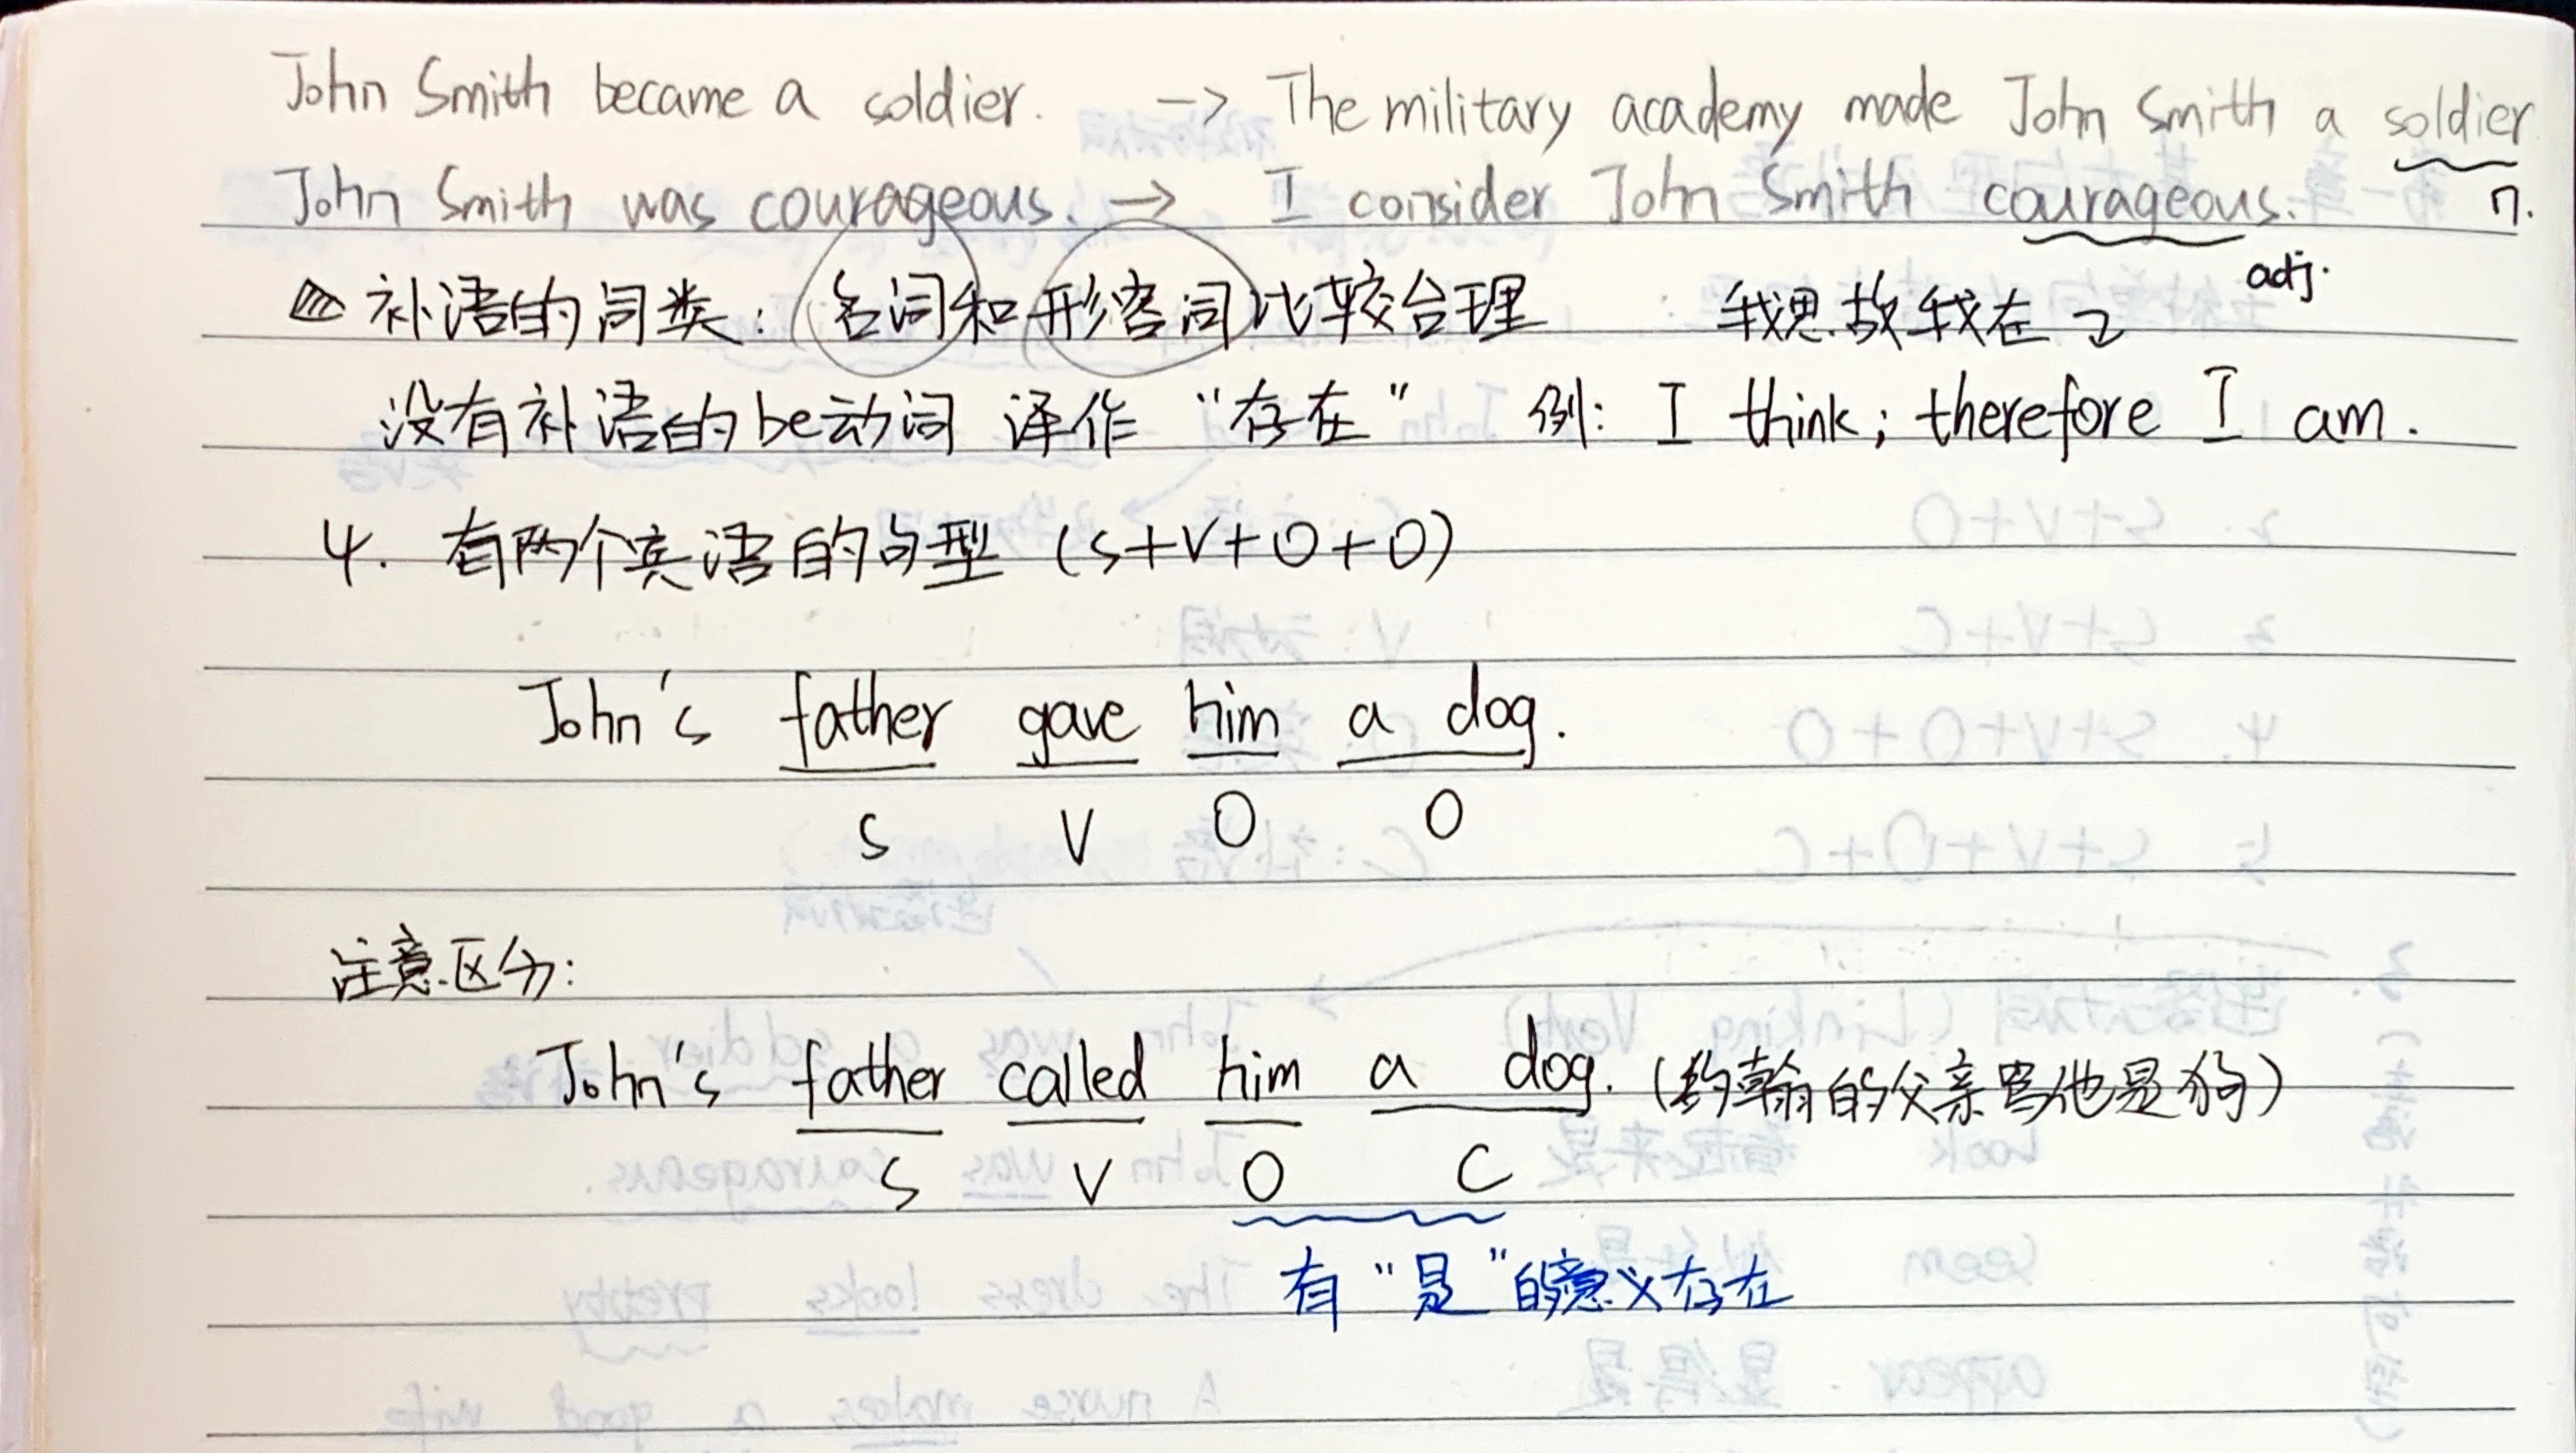 John Smith became a soldier. → The military academy made John Smith a soldier
n.
John Smith was courageous. → I consider John Smith courageous.
adj.
补语的词类：名词和形容词比较合理 我思故我在
没有补语的be动词 译作 “存在” 例: I think; therefore I am.
4. 有两个宾语的句型 (S+V+O+O)
John's father gave him a dog.
S V O O
注意区分:
John's father called him a dog. (约翰的父亲骂他是狗)
S V O C
有“是”的意义存在